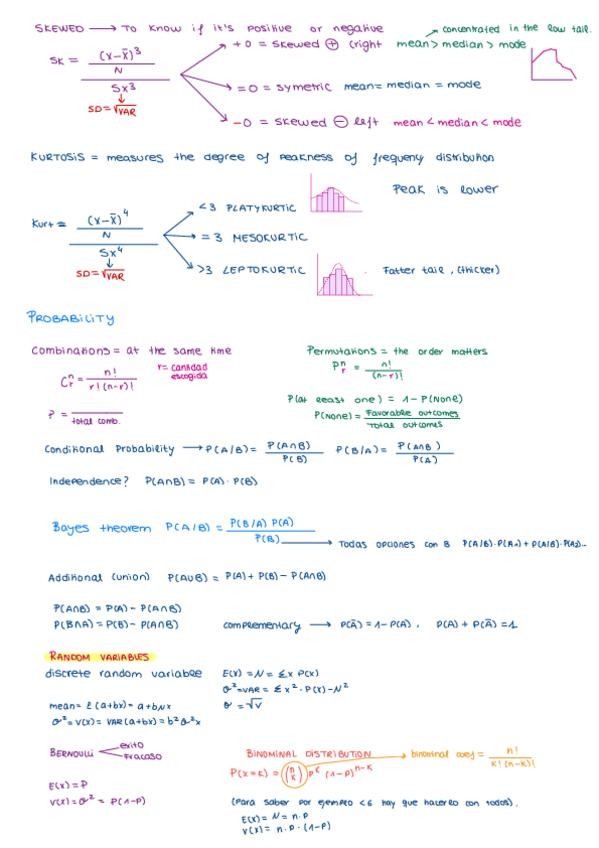 SKEWED → TO KNOW if it's positive or negative
→ concentrated in the low tail.
+0 = skewed ⊕ (right mean > median > mode
SK = (x-x̄)³ / N / Sx³
= 0 = symetric mean = median = mode
SD = √VAR
-0 = skewed ⊖ left mean < median < mode
KURTOSIS = measures the degree of peakness of frequeny distribution
<3 PLATYKURTIC Peak is lower
Kurt = (x-x̄)⁴ / N / Sx⁴
= 3 MESOKURTIC
SD = √VAR
>3 LEPTOKURTIC Fatter tail, (thicker)
PROBABILITY
Combinations = at the same time
r = cantidad escogida
C n r = n! / r!(n-r)!
P = / total comb.
Permutations = the order matters
P n r = n! / (n-r)!
P(at least one) = 1 - P(None)
P(None) = Favorable outcomes / Total outcomes
Conditional Probability → P(A/B) = P(A∩B) / P(B) P(B/A) = P(A∩B) / P(A)
Independence? P(A∩B) = P(A) · P(B)
Bayes theorem P(A/B) = P(B/A) P(A) / P(B) → Todas opciones con B P(A/B)·P(A1) + P(A/B)·P(A2)...
Additional (union) P(A∪B) = P(A) + P(B) - P(A∩B)
P(A∩B) = P(A) - P(A∩B)
P(B∩A) = P(B) - P(A∩B) complementary → P(Ā) = 1-P(A), P(A) + P(Ā) = 1
RANDOM VARIABLES
discrete random variable E(x) = N = Σ x P(x)
σ² = VAR = Σ x² · P(x) - N²
σ = √V
mean = E(a+bx) = a+bNx
σ² = V(x) = VAR(a+bx) = b²σ²x
BERNOULLI exito
Fracaso
E(x) = P
V(x) = σ² = P(1-P)
BINOMINAL DISTRIBUTION → binominal coef = n! / k!(n-k)!
P(x=k) = (n k) P^k (1-P)^n-k
(Para saber por ejemplo <6 hay que hacerlo con todos).
E(x) = N = n.p
V(x) = n.p.(1-p)